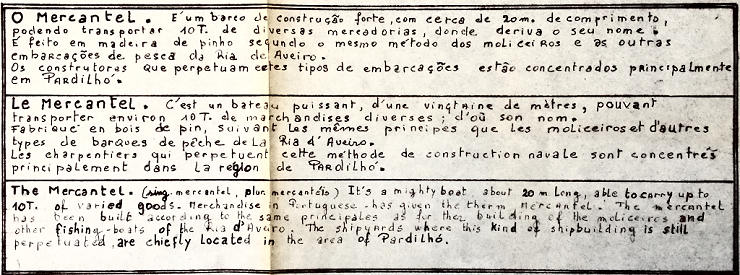 O Mercantel. É'um barco de construção forte, com cerca de 20m. de comprimento,
podendo transportar 10T. de diversas mercadorias, donde deriva o seu nome.
É feito em madeira de pinho segundo o mesmo método dos moliceiros e as outras
embarcações de pesca da Ria de Aveiro.
Os construtores que perpetuam estes tipos de embarcações estão concentrados principalmente
em Pardilhó.
Le Mercantel. C'est un bateau puissant, d'une vingtaine de mètres, pouvant
transporter environ 10T. de marchandises diverses; d'où son nom.
Fabriqué en bois de pin, suivant les mêmes principes que les moliceiros et d'autres
types de barques de pêche de La Ria d'Aveiro.
Les charpentiers qui perpetuent cette méthode de construction navale sont concentrés
principalement dans la région de Pardilhó.
The Mercantel. (sing. mercantel, plur. mercantéis) It's a mighty boat, about 20m long, able to carry up to
10T. of varied goods. Merchandise in Portuguese - has given the therm Mercantel. The mercantel
has been built according to the same principales as for thez building of the moliceiros and
other fishing-boats of the Ria d'Aveiro. The shipyards where this kind of shipbuilding is still
perpetuated, are chiefly located in the area of Pardilhó.